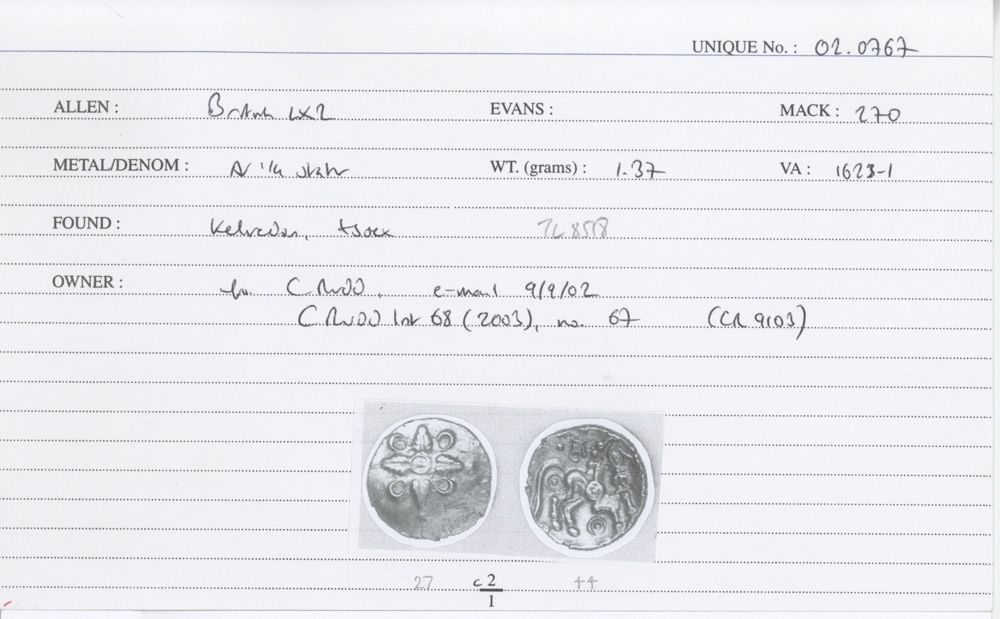 UNIQUE No. : 02.0767
ALLEN : British LX2 EVANS : MACK : 270
METAL/DENOM : AV 1/4 stater WT. (grams) : 1.37 VA : 1623-1
FOUND : Kelvedon, Essex TL 8518
OWNER : fr. C. Rudd, e-mail 9/9/02
C. Rudd list 68 (2003), no. 67 (CR 9103)
27 c2 44
1